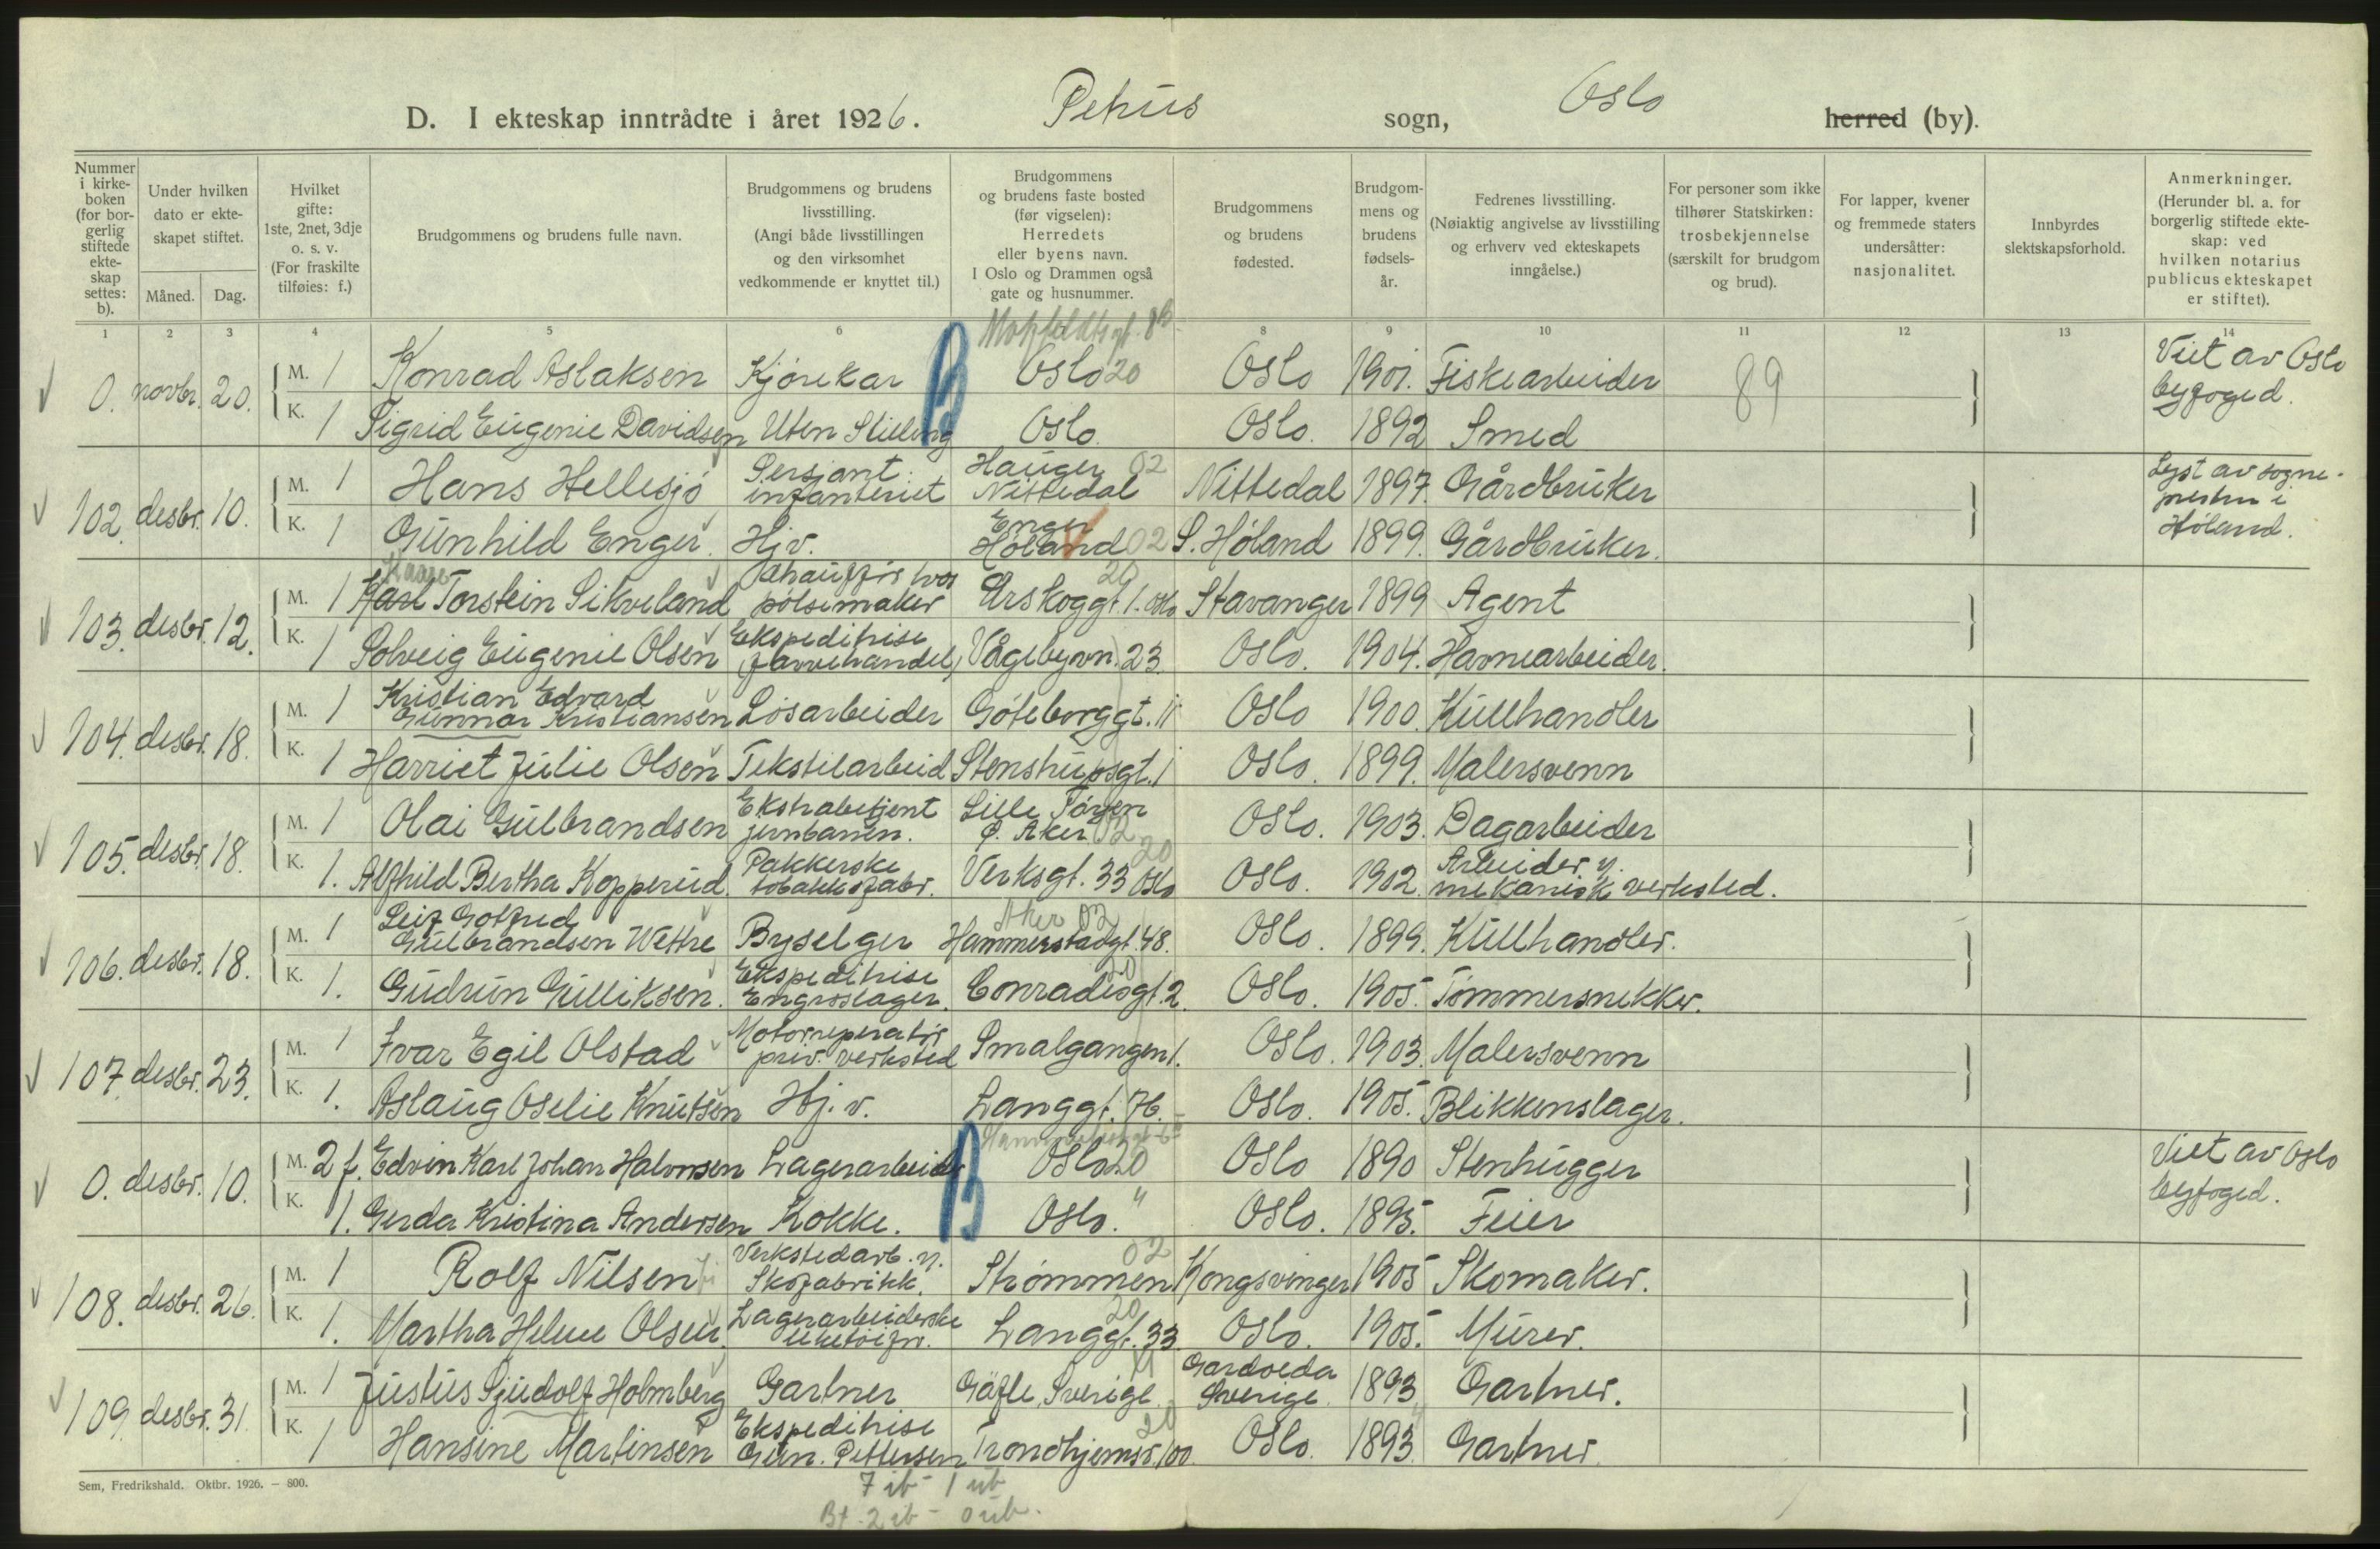 D. I ekteskap inntrådte i året 1926. Petrus sogn, Oslo herred (by).
Nummer i kirkeboken (for borgerlig stiftede ekteskap settes: b).
Under hvilken dato er ekteskapet stiftet.
Måned. Dag.
Hvilket gifte: 1ste, 2net, 3dje o. s. v. (For fraskilte tilføies: f.)
Brudgommens og brudens fulle navn.
Brudgommens og brudens livsstilling. (Angi både livsstillingen og den virksomhet vedkommende er knyttet til.)
Brudgommens og brudens faste bosted (før vigselen): Herredets eller byens navn. I Oslo og Drammen også gate og husnummer.
Brudgommens og brudens fødested.
Brudgommens og brudens fødselsår.
Fedrenes livsstilling. (Nøiaktig angivelse av livsstilling og erhverv ved ekteskapets inngåelse.)
For personer som ikke tilhører Statskirken: trosbekjennelse (særskilt for brudgom og brud).
For lapper, kvener og fremmede staters undersåtter: nasjonalitet.
Innbyrdes slektskapsforhold.
Anmerkninger. (Herunder bl. a. for borgerlig stiftede ekteskap: ved hvilken notarius publicus ekteskapet er stiftet).
1 2 3 4 5 6 8 9 10 11 12 13 14
0. novbr. 20. M. 1 Konrad Aslaksen Kjørekar B Oslo 20 Oslo 1901. Fiskearbeider 89 Viet av Oslo byfoged.
K. 1 Sigrid Eugenie Davidsen Uten Stilling Oslo. Oslo. 1892 Smed
102. desbr. 10. M. 1 Hans Hellesjø Sersjant infanteriet Hauger Nittedal 02 Nittedal 1897. Gårdbruker Lyst av sognepresten i Høland.
K. 1 Gunhild Enger. Hjv. Enger Høland 02 S. Høland 1899. Gårdbruker.
103. desbr. 12. M. 1 Karl Kaare Torstein Sikveland chauffør hos pølsemaker Urskoggt. 1. Oslo 20 Stavanger 1899 Agent
K. 1 Solveig Eugenie Olsen Ekspeditrise farvehandel, Vågebyvn. 23 Oslo. 1904. Havnearbeider.
104. desbr. 18. M. 1 Kristian Edvard Gunnar Kristiansen Løsarbeider Gøteborggt. 11 Oslo 1900. Kullhandler
K. 1 Harriet Julie Olsen Tekstilarbeid Stenstrupsgt. 1 Oslo. 1899. Malersvenn
105. desbr. 18. M. 1 Olai Gulbrandsen Ekstrabetjent jernbanen. Lille Tøyen Ø. Aker 02 Oslo. 1903. Dagarbeider
K. 1. Alfhild Bertha Kopperud. Pakkerske tobakksfabr. Verksgt. 33 Oslo 20 Oslo. 1902. Arbeider v. mekanisk verksted.
106. desbr. 18. M. 1 Leif Gotfred Gulbrandsen Wettre Byselger Aker 02 Hammerstadgt. 48. Oslo. 1899. Kullhandler.
K. 1. Gudrun Gulliksen. Ekspeditrise Engroslager. Conradisgt. 2 20 Oslo. 1905. Tømmersnekker.
107. desbr. 23. M. 1 Ivar Egil Olstad Motorreperatør priv. verksted Smalgangen 1. Oslo. 1903. Malersvenn
K. 1. Aslaug Oselie Knutsen Hj. v. Langgt. 76. Oslo. 1905. Blikkenslager.
0. desbr. 10. M. 2 f. Edvin Karl Johan Halvorsen Lagerarbeider B Oslo 20 Oslo 1890 Stenhugger Viet av Oslo byfoged.
K. 1. Gerda Kristina Andersen Kokke. Oslo. " Oslo. 1895. Feier
108. desbr. 26. M. 1 Rolf Nilsen Verkstedarb. v. Skofabrikk. Strømmen 02 Kongsvinger 1905 Skomaker.
K. 1. Martha Helene Olsen. Lagerarbeiderske Langgt. 33. 20 Oslo. 1905. Murer.
109. desbr. 31. M. 1 Justus Sjudolf Holmberg Gartner Gäfle, Sverige Gardveda Sverige 1893 Gartner.
K. 1 Hansine Martinsen Ekspeditrise Gun. Pettersen Trondhjemsv. 100 20 Oslo. 1893 Gartner.
Sem, Fredrikshald. Oktbr. 1926. — 800.
7 ib - 1 ub
Bf. 2 ib - 0 ub.